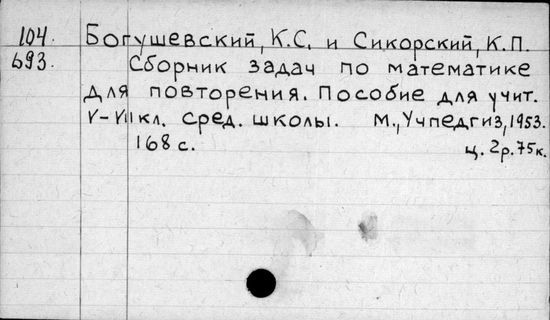 104. Богушевский, К.С. и Сикорский, К.П.
693. Сборник задач по математике
для повторения. Пособие для учит.
V-VII кл. сред. школы. М., Учпедгиз, 1953.
168 с. ц. 2р. 75к.